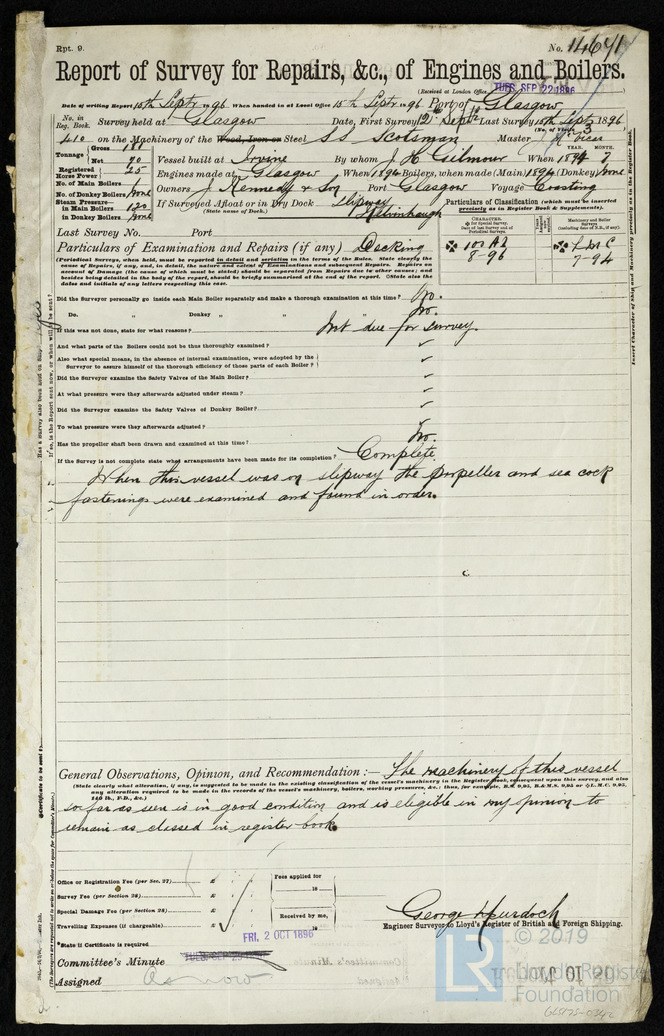 Rpt. 9.
No. 14641
Report of Survey for Repairs, &c., of Engines and Boilers.
(Received at London Office TUES. SEP 22 1896
Date of writing Report 15th Septr 1896 When handed in at Local Office 15th Septr 1896 Port of Glasgow
No. in Reg. Book. Survey held at Glasgow Date, First Survey 12th Septr Last Survey 15th Septr 1896
(No. of Visits 3)
410 on the Machinery of the Wood, Iron or Steel S S Scotsman Master
Tonnage Gross 188 Net 70 Vessel built at Irvine By whom J. H. Gilmour When YEAR. 1894 MONTH. 7
Registered Horse Power 25 Engines made at Glasgow When 1894 Boilers, when made (Main) 1894 (Donkey) None
No. of Main Boilers 1
No. of Donkey Boilers None Owners J. Kennedy & Son Port Glasgow Voyage Coasting
Steam Pressure— in Main Boilers 120 in Donkey Boilers None
If Surveyed Afloat or in Dry Dock Slipway Kelvinhaugh
(State name of Dock.)
Particulars of Classification (which must be inserted precisely as in Register Book & Supplements).
CHARACTER. ✠ for Special Survey. Date of last Survey and of Periodical Surveys.
Machinery and Boiler Surveys (including date of N.B., if any).
✠ 100 A1 8-96
✠ LMC 7-94
Last Survey No. Port
Particulars of Examination and Repairs (if any) Docking
(Periodical Surveys, when held, must be reported in detail and seriatim in terms of the Rules. State clearly the
cause of Repairs, if any, and, in detail, the nature and extent of Examinations and subsequent Repairs. Repairs on
account of Damage (the cause of which must be stated) should be separated from Repairs due to other causes; and
besides being detailed in the body of the report, should be briefly summarised at the end of the report. State also the
dates and initials of any letters respecting this case.
Did the Surveyor personally go inside each Main Boiler separately and make a thorough examination at this time? No.
Do. " Donkey " " " " No.
If this was not done, state for what reasons? Not due for survey.
And what parts of the Boilers could not be thoroughly examined? ✓
Also what special means, in the absence of internal examination, were adopted by the
Surveyor to assure himself of the thorough efficiency of those parts of each Boiler? ✓
Did the Surveyor examine the Safety Valves of the Main Boiler? ✓
At what pressure were they afterwards adjusted under steam? ✓
Did the Surveyor examine the Safety Valves of Donkey Boiler? ✓
To what pressure were they afterwards adjusted?
Has the propeller shaft been drawn and examined at this time? No.
If the Survey is not complete state what arrangements have been made for its completion? Complete.
When this vessel was on slipway the propeller and sea cock
fastenings were examined and found in order.
General Observations, Opinion, and Recommendation :— The machinery of this vessel
(State clearly what alteration, if any, is suggested to be made in the existing classification of the vessel's machinery in the Register Book, consequent upon this survey, and also
any alteration required to be made in the records of the vessel's machinery, boilers, working pressure, &c.; thus, for example, B.S. 9,95, B.&M.S. 9,95 or ✠L.M.C. 9,95,
140 lb., F.D., &c.)
so far as seen is in good condition and is eligible in my opinion to
remain as classed in register book.
Office or Registration Fee (per Sec. 27) £ : :
Survey Fee (per Section 28) £ : :
Special Damage Fee (per Section 28) £ : :
Travelling Expenses (if chargeable) £ : :
Fees applied for
18
Received by me,
18
George Murdoch
Engineer Surveyor to Lloyd's Register of British and Foreign Shipping.
State if Certificate is required
FRI. 2 OCT 1896
Committee's Minute
Assigned As now
LR
© 2019
Lloyd's Register
Foundation